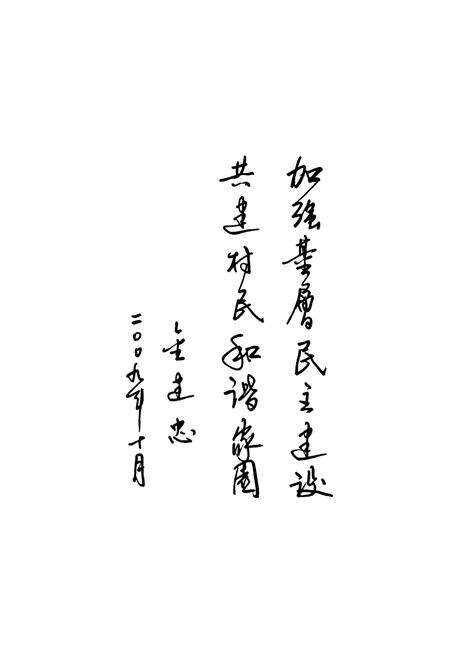 加强基層民主建设
共建村民和谐家園
金建忠
二〇〇九年十月